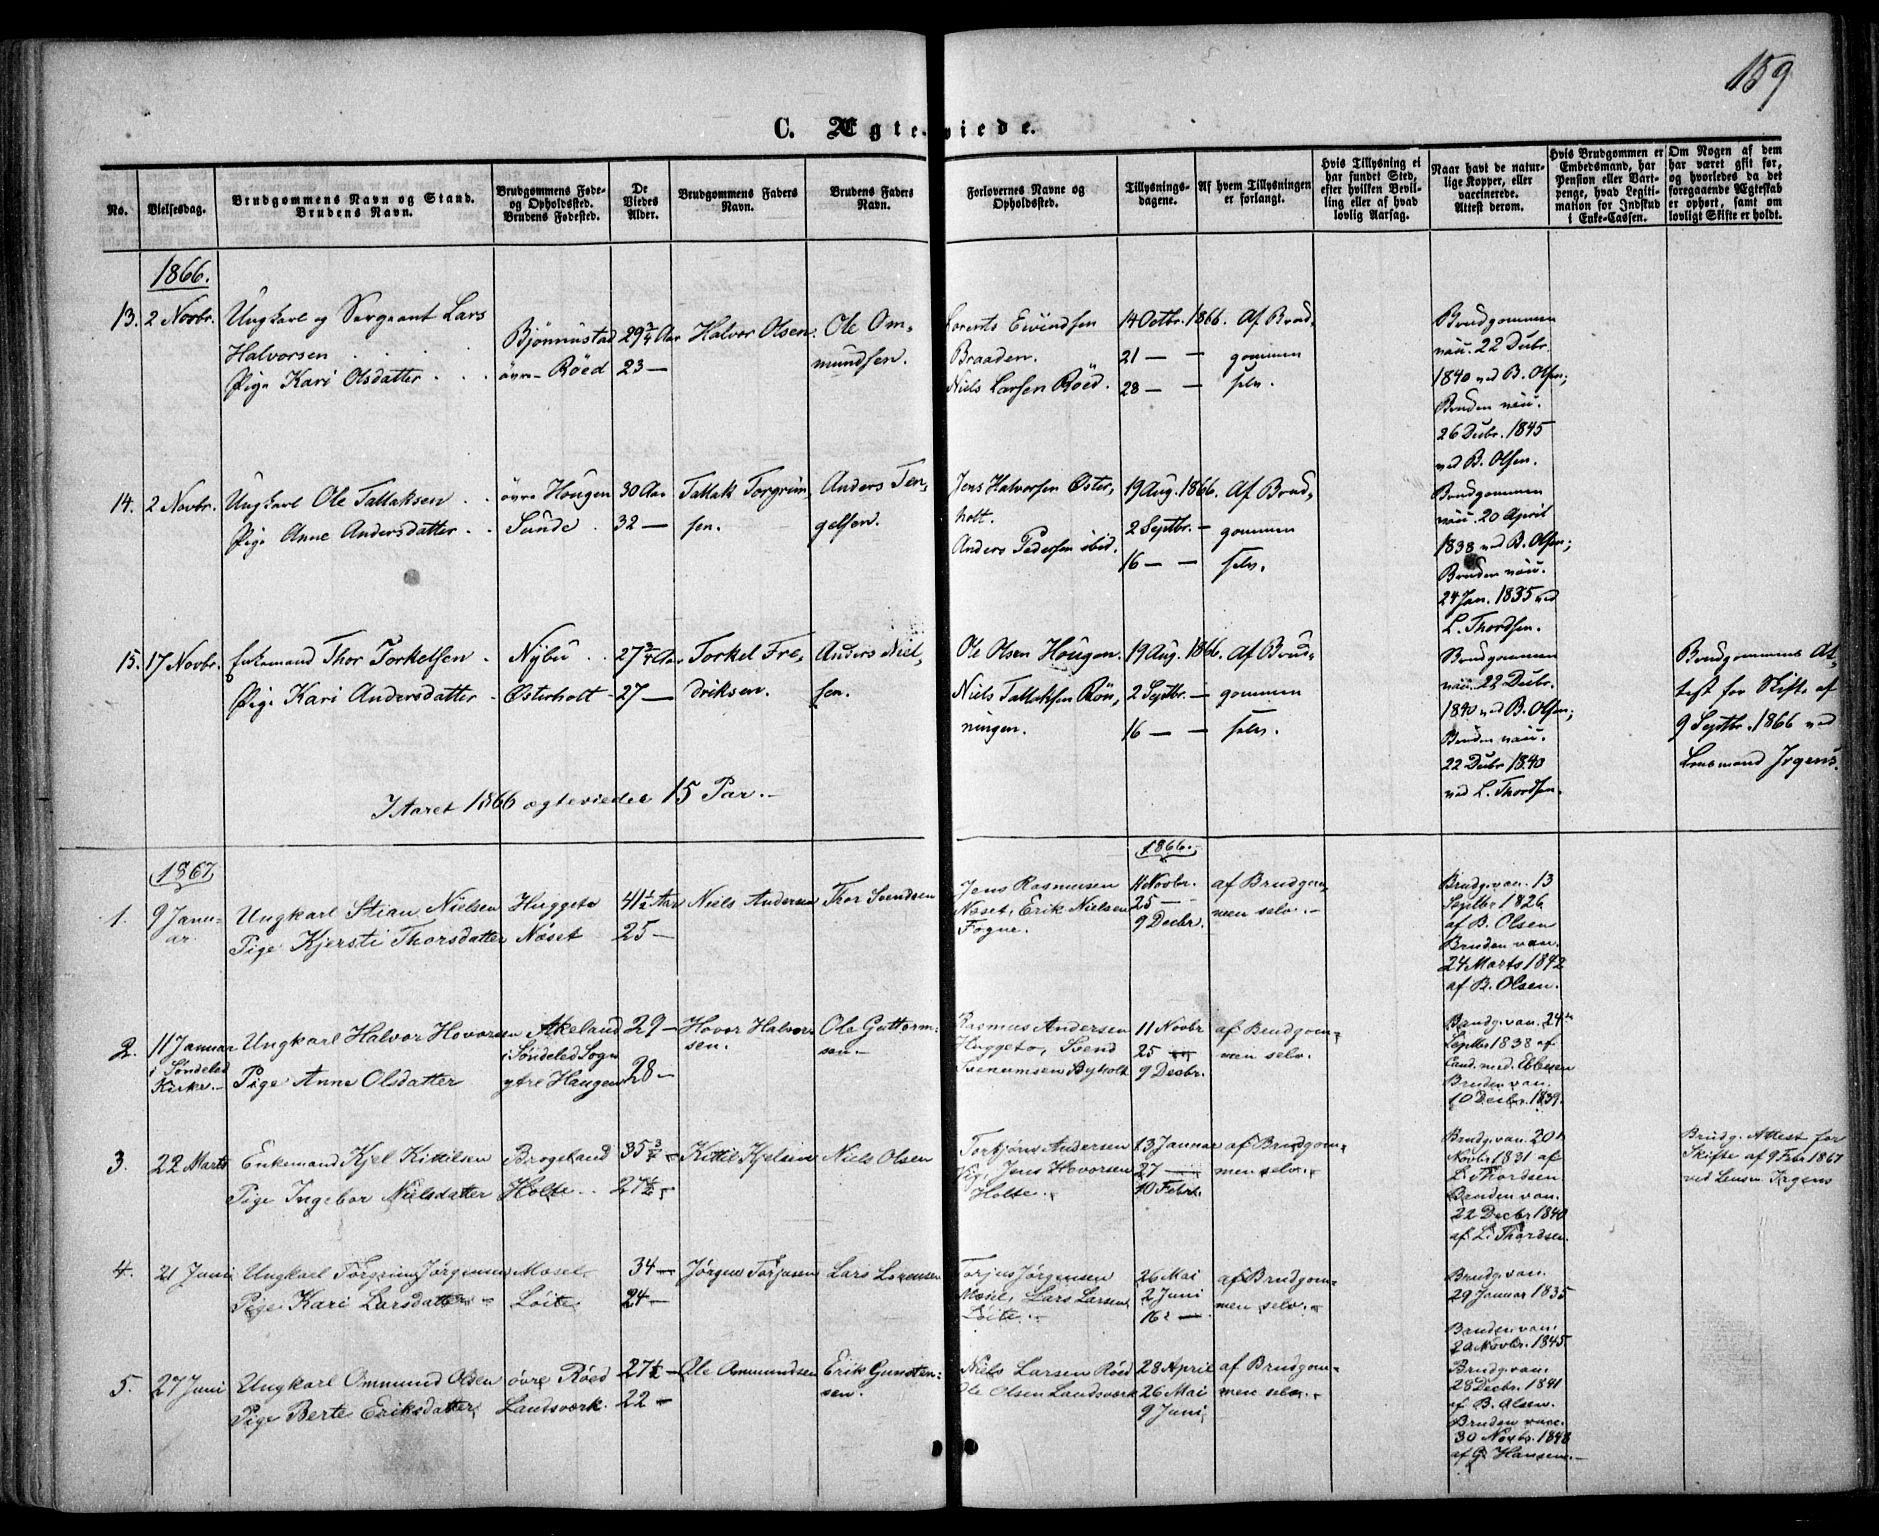 159
C. Ægteviede.
No.
Vielsesdag.
Brudgommens Navn og Stand.
Brudens Navn.
Brudgommens Føde-
og Opholdssted.
Brudens Fødested.
De
Viedes
Alder.
Brudgommens Faders
Navn.
Brudens Faders
Navn.
Forlovernes Navne og
Opholdssted.
Tillysnings-
dagene.
Af hvem Tillysningen
er forlangt.
Hvis Tillysning ei
har fundet Sted,
efter hvilken Bevil-
ling eller af hvad
lovlig Aarsag.
Naar havt de natur-
lige Kopper, eller
vaccinerede.
Attest derom.
Hvis Brudgommen er
Embedsmand, har
Pension eller Vart-
penge, hvad Legiti-
mation for Indskud
i Enke-Cassen.
Om Nogen af dem
har været gift før,
og hvorledes da det
foregaaende Ægteskab
er ophørt, samt om
lovligt Skifte er holdt.
1866.
13. 2 Novbr. Ungkarl og Sergeant Lars
Halvorsen
Pige Kari Olsdatter
Bjønnustad
øvre Röed
29 3/4 Aar
23 —
Halvor Olsen.
Ole Om-
mundsen.
Lorents Eivindsen
Braaden.
Niels Larsen Röed.
14 Octbr. 1866.
21 — —
28 — —
Af Brud-
gommen
selv.
Brudgommen
vacc. 22 Decbr.
1840 ved B. Olsen;
Bruden vacc.
26 Decbr. 1845
ved B. Olsen.
14. 2 Novbr. Ungkarl Ole Tallaksen
Pige Anne Andersdatter
øvre Hougen
Sunde
30 Aar
32 —
Tallak Torgrim-
sen.
Anders Ten-
gelsen.
Jens Halvorsen Øster-
holt.
Anders Pedersen ibid.
19 Aug. 1866.
2 Septbr. —
16 — —
Af Brud-
gommen
selv.
Brudgommen
vacc. 20 April
1838 ved B. Olsen;
Bruden vacc.
24 Jan. 1835 ved
L. Thordsen.
15. 17 Novbr. Enkemand Thor Torkelsen
Pige Kari Andersdatter
Nybu
Østerholt
27 3/4 Aar
27 —
Torkel Fre-
driksen.
Anders Niel-
sen.
Ole Olsen Hougen.
Niels Tallaksen Rön-
ningen.
19 Aug. 1866.
2 Septbr. —
16 — —
Af Brud-
gommen
selv.
Brudgommen
vacc. 22 Decbr.
1840 ved B. Olsen;
Bruden vacc.
22 Decbr 1840
ved L. Thordsen.
Brudgommens At-
test for Skifte af
9 Septbr. 1866 ved
Lensmand Irgens.
I Aaret 1866 ægteviede 15 Par.
1867
1. 9 Janu-
ar.
Ungkarl Stian Nielsen
Pige Kjersti Thorsdatter
Huggeto
Næset
41 1/2 Aar
25 —
Niels Andersen
Thor Svendsen
Jens Rasmusen
Næset, Erik Nielsen
Fogne.
1866.
11 Novbr.
25 —
9 Decbr.
af Brudgom-
men selv.
Brudg. van. 13
Septbr 1826
af B. Olsen
Bruden van.
24 Marts 1842
af B. Olsen.
2. 11 Januar
i Söndeled
Kirke.
Ungkarl Halvor Hovorsen
Pige Anne Olsdatter
Akeland
i Söndeled Sogn
ytre Haugen
29 —
28 —
Hovor Halvor-
sen.
Ole Guttorm-
sen.
Rasmus Andersen
Huggeto, Svend
Svenumsen Byholt
11 Novbr
25 —
9 Decbr.
af Brudgom-
men selv.
Brudg. van. 24de
Septbr 1838 af
Cand. med. Ebbesen
Bruden van.
10 Decbr. 1839.
3. 22 Marts
Enkemand Kjel Kittilsen
Pige Ingebor Nielsdatter
Brogeland
Holte
35 3/4 —
27 1/2 —
Kittil Kjelsen
Niels Olsen
Torbjörn Andersen
Jens Hovorsen
Holte
13 Januar
27 —
10 Febr.
af Brudgom-
men selv.
Brudg. van. 20de
Novbr 1831 af
L. Thordsen
Bruden van.
22 Decbr 1840
af L. Thordsen.
Brudg. Attest for
Skifte af 9 Febr 1867
ved Lensm. Irgens
4. 21 Juni
Ungkarl Torgrim Jörgensen
Pige Kari Larsdatter
Moset
Löite
34 —
24 —
Jörgen Torjusen
Lars Lorensen
Torjus Jörgensen
Mosel, Lars Larsen
Löite.
26 Mai
2 Juni
16 —
af Brudgom-
men selv.
Brudg. van.
29 Januar 1835
Bruden van.
20 Novbr. 1845
5. 27 Juni
Ungkarl Ommund Olsen
Pige Berte Eriksdatter
övre Röed
Landsværk.
27 1/2 —
22 —
Ole Ommundsen
Erik Gunsten-
sen.
Niels Larsen Röed
Ole Olsen Landsværk
28 April
26 Mai
9 Juni
af Brudgom-
men selv.
Brudg. van.
28 Decbr. 1841
af B. Olsen.
Bruden vacc.
30 Novbr. 1848
af G. Hansen.